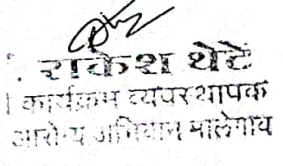 . राकेश थेटे
कार्यक्रम व्यवस्थापक
आरोग्य अभियान मालेगाव